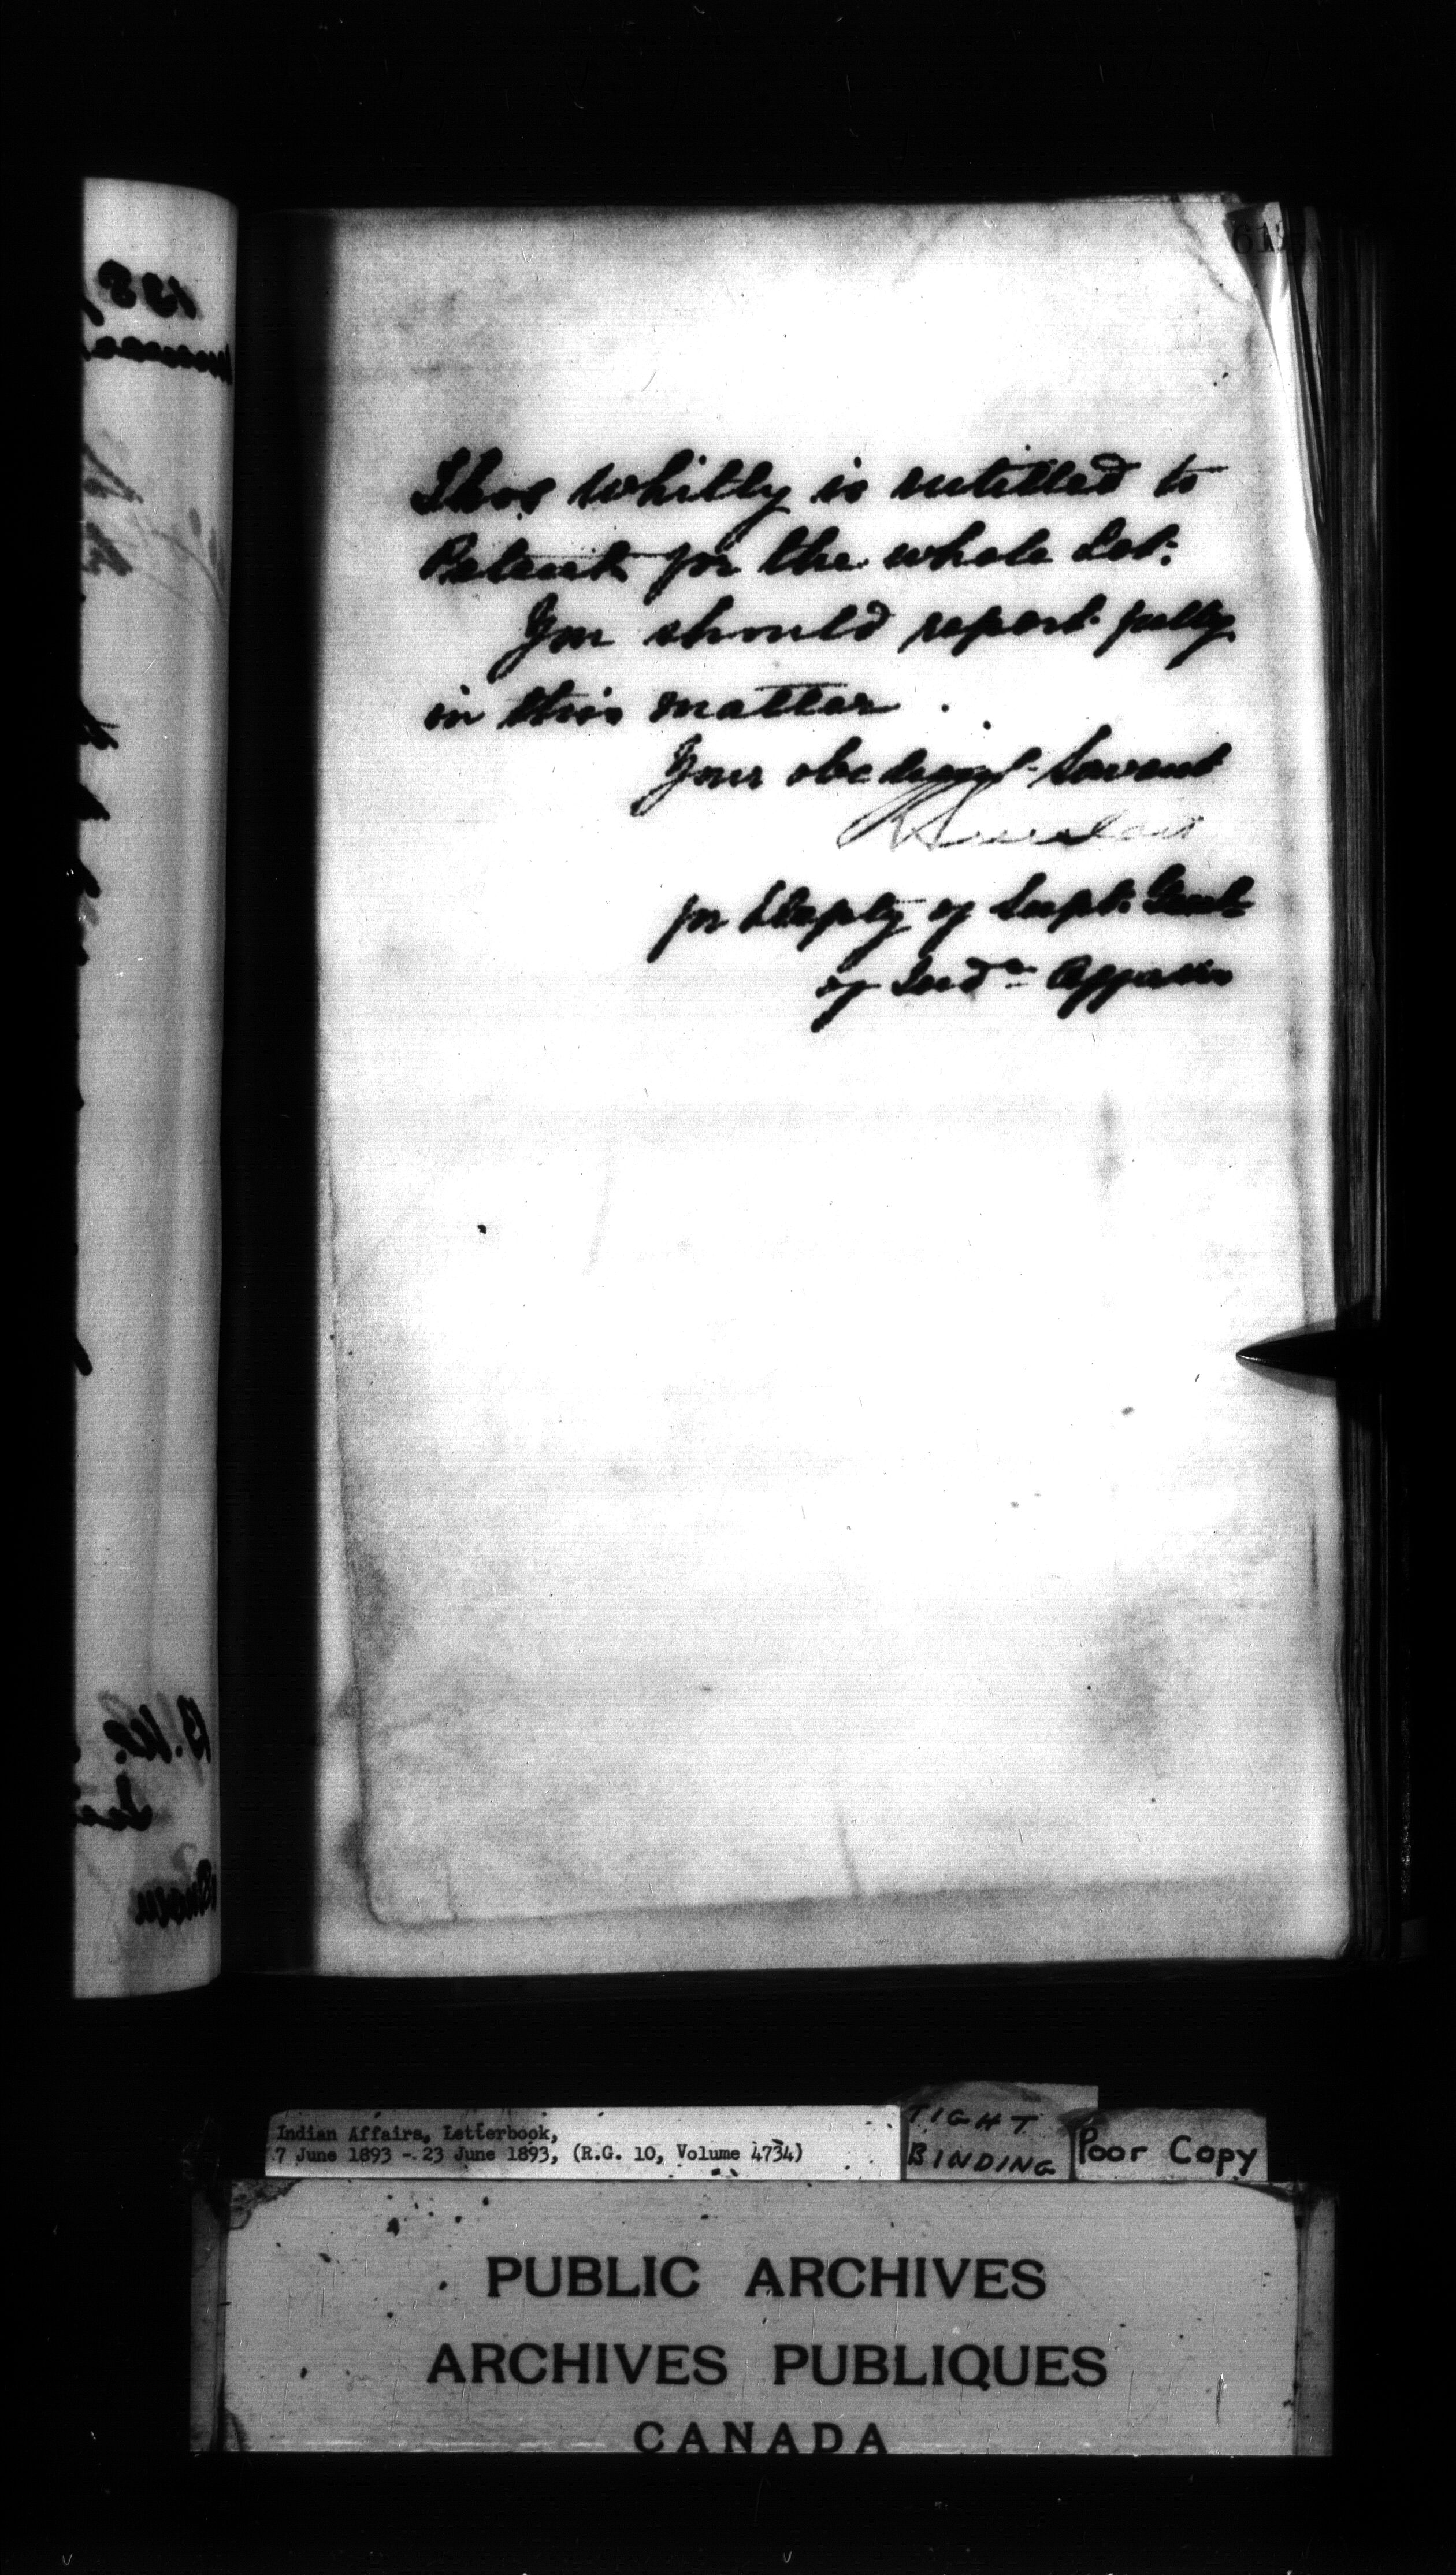 Thos Whitty is entitled to
Patent for the whole Lot.
You should report fully
in this matter.
Your obedient Servant
for Deputy of Supt. Genl
of Indn Affairs
Indian Affairs, Letterbook,
7 June 1893 - 23 June 1893, (R.G. 10, Volume 4734)
TIGHT
BINDING
Poor Copy
PUBLIC ARCHIVES
ARCHIVES PUBLIQUES
CANADA